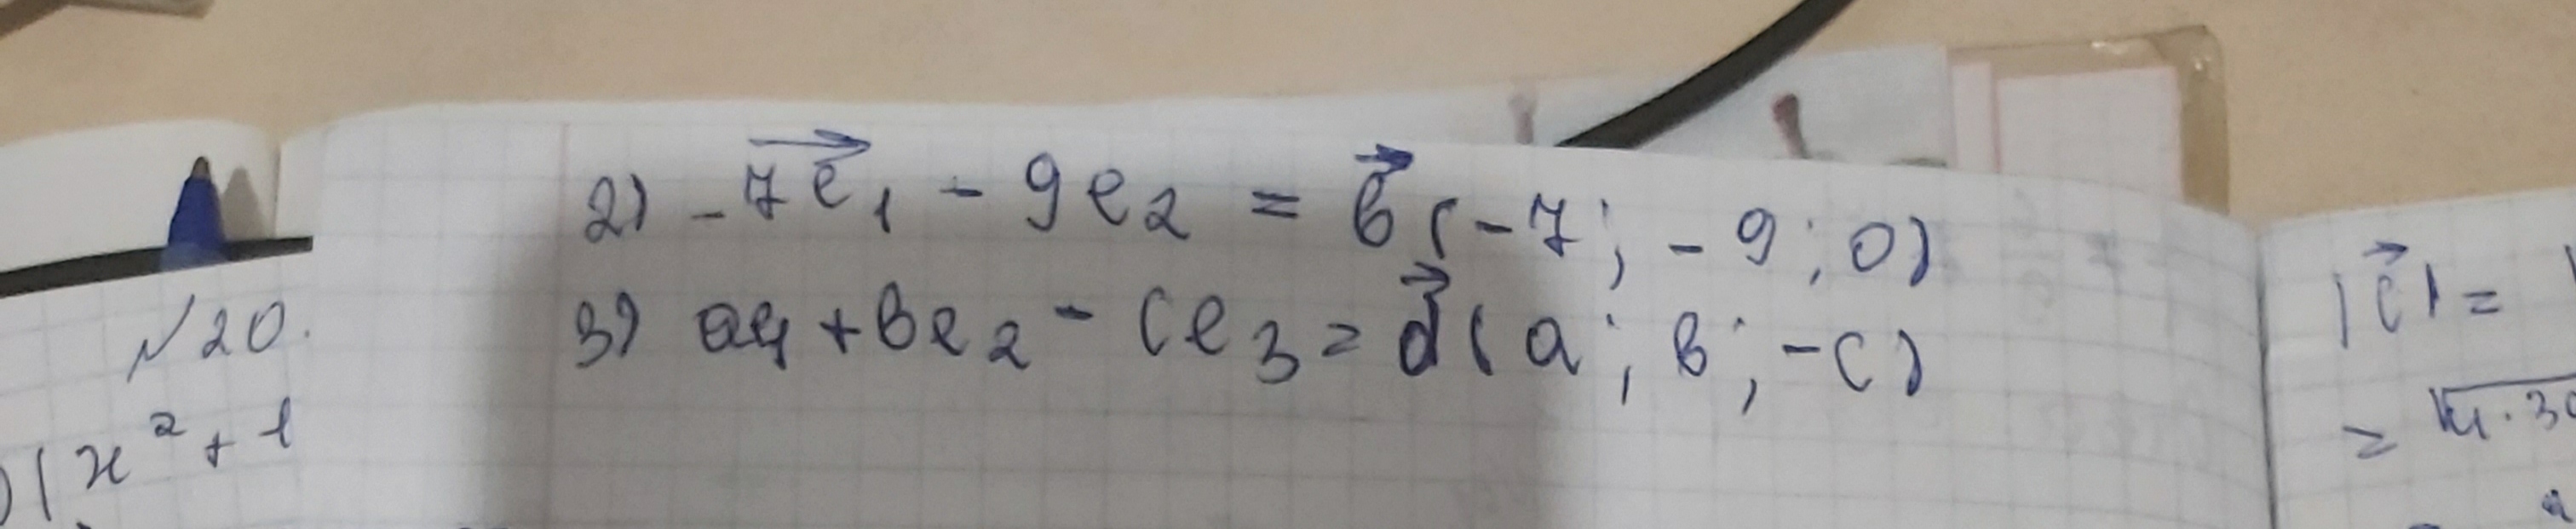 2) -7e₁ - 9e₂ = b(-7; -9; 0)
3) ae₁ + be₂ - ce₃ = d(a; b; -c)
№20.
x² + 1
|c| =
=